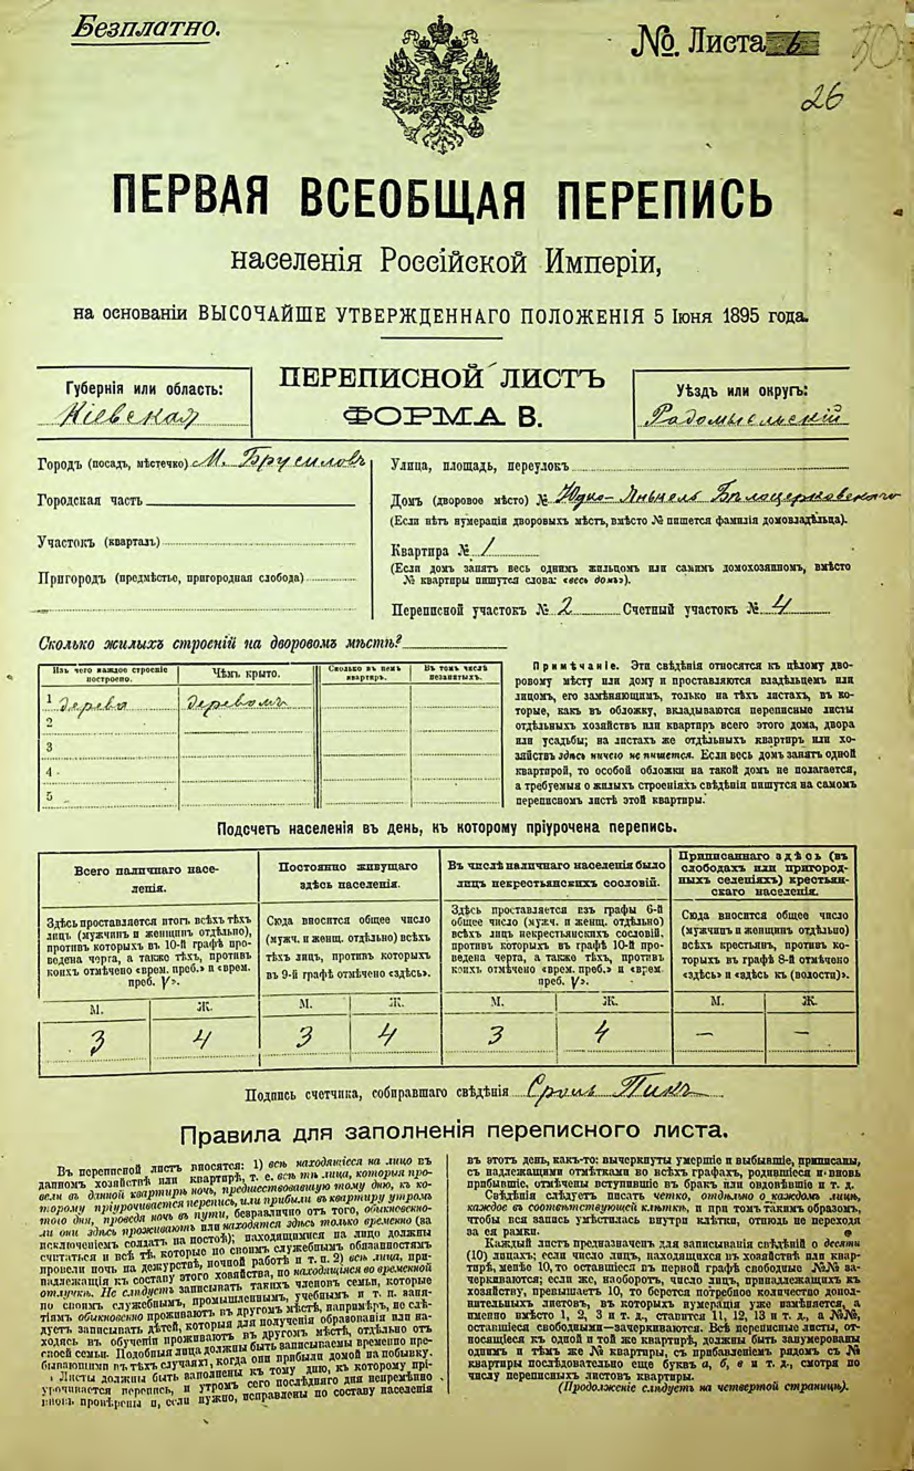 Безплатно.
№. Листа 6
30
26
ПЕРВАЯ ВСЕОБЩАЯ ПЕРЕПИСЬ
населенія Россійской Имперіи,
на основаніи ВЫСОЧАЙШЕ УТВЕРЖДЕННАГО ПОЛОЖЕНІЯ 5 Іюня 1895 года.
Губернія или область:
Кіевская
ПЕРЕПИСНОЙ ЛИСТЪ
ФОРМА В.
Уѣздъ или округъ:
Радомысльскій
Городъ (посадъ, мѣстечко) М. Брусиловъ
Городская часть
Участокъ (кварталъ)
Пригородъ (предмѣстье, пригородная слобода)
Улица, площадь, переулокъ
Домъ (дворовое мѣсто) № Юдко-Янкель Бѣлоцерковскаго
(Если нѣтъ нумераціи дворовыхъ мѣстъ, вмѣсто № пишется фамилія домовладѣльца).
Квартира № 1
(Если домъ занятъ весь однимъ жильцомъ или самимъ домохозяиномъ, вмѣсто
№ квартиры пишутся слова: «весь домъ»).
Переписной участокъ № 2 Счетный участокъ № 4
Сколько жилыхъ строеній на дворовомъ мѣстѣ?
Изъ чего каждое строеніе построено.
Чѣмъ крыто.
Сколько въ немъ квартиръ.
Въ томъ числѣ незанятыхъ.
1 дерева деревомъ
2
3
4
5
Примѣчаніе. Эти свѣдѣнія относятся къ цѣлому дво-
ровому мѣсту или дому и проставляются владѣльцемъ или
лицомъ, его замѣняющимъ, только на тѣхъ листахъ, въ ко-
торые, какъ въ обложку, вкладываются переписные листы
отдѣльныхъ хозяйствъ или квартиръ всего этого дома, двора
или усадьбы; на листахъ же отдѣльныхъ квартиръ или хо-
зяйствъ здѣсь ничего не пишется. Если весь домъ занятъ одной
квартирой, то особой обложки на такой домъ не полагается,
а требуемыя о жилыхъ строеніяхъ свѣдѣнія пишутся на самомъ
переписномъ листѣ этой квартиры.
Подсчетъ населенія въ день, къ которому пріурочена перепись.
Всего наличнаго насе-
ленія.
Здѣсь проставляется итогъ всѣхъ тѣхъ
лицъ (мужчинъ и женщинъ отдѣльно),
противъ которыхъ въ 10-й графѣ про-
ведена черта, а также тѣхъ, противъ
коихъ отмѣчено «врем. преб.» и «врем.
преб. V».
Постоянно живущаго
здѣсь населенія.
Сюда вносится общее число
(мужч. и женщ. отдѣльно) всѣхъ
тѣхъ лицъ, противъ которыхъ
въ 9-й графѣ отмѣчено «здѣсь».
Въ числѣ наличнаго населенія было
лицъ некрестьянскихъ сословій.
Здѣсь проставляется изъ графы 6-й
общее число (мужч. и женщ. отдѣльно)
всѣхъ лицъ некрестьянскихъ сословій,
противъ которыхъ въ графѣ 10-й про-
ведена черта, а также тѣхъ, противъ
коихъ отмѣчено «врем. преб.» и «врем.
преб. V».
Приписаннаго здѣсь (въ
слободахъ или пригород-
ныхъ селеніяхъ) крестьян-
скаго населенія.
Сюда вносится общее число
(мужчинъ и женщинъ отдѣльно)
всѣхъ крестьянъ, противъ ко-
торыхъ въ графѣ 8-й отмѣчено
«здѣсь» и «здѣсь къ (волости)».
М. Ж. М. Ж. М. Ж. М. Ж.
3 4 3 4 3 4 — —
Подпись счетчика, собиравшаго свѣдѣнія Сроль Пикъ
Правила для заполненія переписнаго листа.
Въ переписной листъ вносятся: 1) всѣ находящіеся на лицо въ
данномъ хозяйствѣ или квартирѣ, т. е. всѣ тѣ лица, которыя про-
вели въ данной квартирѣ ночь, предшествовавшую тому дню, къ ко-
торому пріурочивается перепись, или прибыли въ квартиру утромъ
того дня, проведя ночь въ пути, безразлично отъ того, обыкновенно-
ли они здѣсь проживаютъ или находятся здѣсь только временно (за
исключеніемъ солдатъ на постоѣ); находящимися на лицо должны
считаться и всѣ тѣ, которые по своимъ служебнымъ обязанностямъ
провели ночь на дежурствѣ, ночной работѣ и т. п. 2) всѣ лица, при-
надлежащія къ составу этого хозяйства, но находящіяся во временной
отлучкѣ. Не слѣдуетъ записывать такихъ членовъ семьи, которые
по своимъ служебнымъ, промышленнымъ, учебнымъ и т. п. заня-
тіямъ обыкновенно проживаютъ въ другомъ мѣстѣ, напримѣръ, не слѣ-
дуетъ записывать дѣтей, которыя для полученія образованія или на-
ходясь въ обученіи проживаютъ въ другомъ мѣстѣ, отдѣльно отъ
своей семьи. Подобныя лица должны быть записываемы временно пре-
бывающими въ тѣхъ случаяхъ, когда они прибыли домой на побывку.
Листы должны быть заполнены къ тому дню, къ которому прі-
урочивается перепись, и утромъ сего послѣдняго дня непремѣнно
вновь провѣрены и, если нужно, исправлены по составу населенія
въ этотъ день, какъ-то: вычеркнуты умершіе и выбывшіе, приписаны,
съ надлежащими отмѣтками во всѣхъ графахъ, родившіеся и вновь
прибывшіе, отмѣчены вступившіе въ бракъ или овдовѣвшіе и т. д.
Свѣдѣнія слѣдуетъ писать четко, отдѣльно о каждомъ лицѣ,
каждое въ соотвѣтствующей клѣткѣ, и при томъ такимъ образомъ,
чтобы вся запись умѣстилась внутри клѣтки, отнюдь не переходя
за ея рамки.
Каждый листъ предназначенъ для записыванія свѣдѣній о десяти
(10) лицахъ; если число лицъ, находящихся въ хозяйствѣ или квар-
тирѣ, менѣе 10, то оставшіеся въ первой графѣ свободные №№ за-
черкиваются; если же, наоборотъ, число лицъ, принадлежащихъ къ
хозяйству, превышаетъ 10, то берется потребное количество допол-
нительныхъ листовъ, въ которыхъ нумерація уже измѣняется, а
именно вмѣсто 1, 2, 3 и т. д., ставится 11, 12, 13 и т. д., а №№,
оставшіеся свободными—зачеркиваются. Всѣ переписные листы, от-
носящіеся къ одной и той же квартирѣ, должны быть занумерованы
однимъ и тѣмъ же №, съ прибавленіемъ рядомъ съ №
квартиры послѣдовательно еще буквъ а, б, в и т. д., смотря по
числу переписныхъ листовъ квартиры.
(Продолженіе слѣдуетъ на четвертой страницѣ).